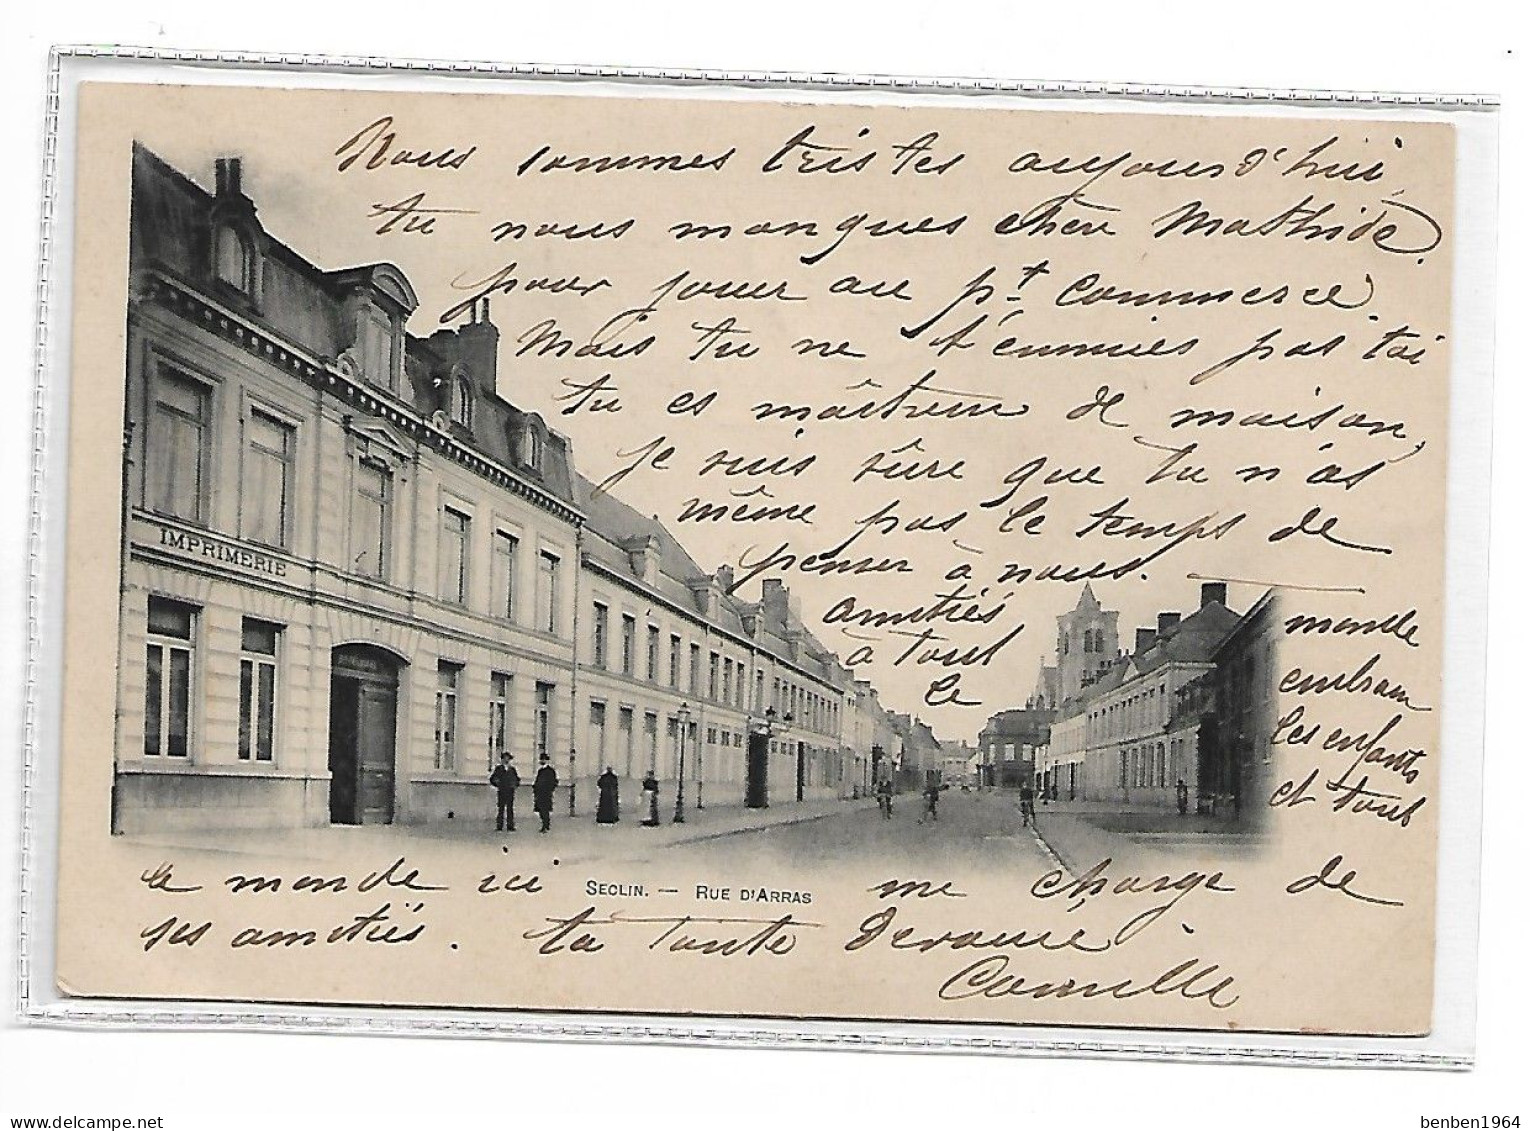 Nous sommes tristes aujourd'hui,
tu nous manques chère Mathilde
pour jouer au pt commerce.
Mais tu ne t'ennuies pas toi
tu es maîtresse de maison,
je suis sûre que tu n'as
même pas le temps de
penser à nous.
amitiés
à tout
le
monde
embrasse
les enfants
et tout
IMPRIMERIE
le monde ici me charge de
SECLIN. — RUE D'ARRAS
ses amitiés. ta Tante
Camille
benben1964